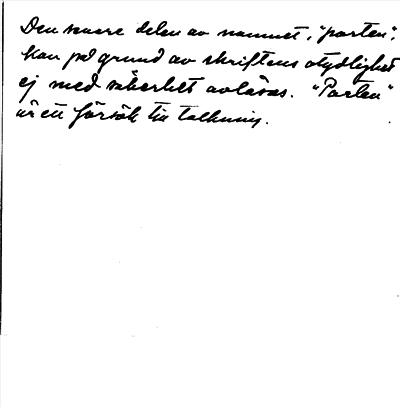 Den senare delen av namnet, "porten",
kan på grund av skriftens otydlighet
ej med säkerhet avläsas. "Porten"
är ett försök till tolkning.